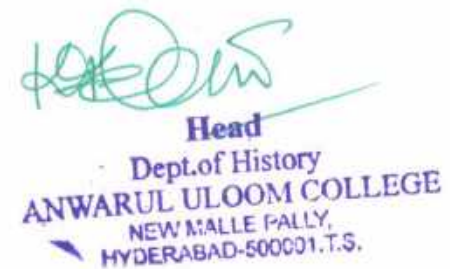 Head
Dept.of History
ANWARUL ULOOM COLLEGE
NEW MALLE PALLY,
HYDERABAD-500001.T.S.